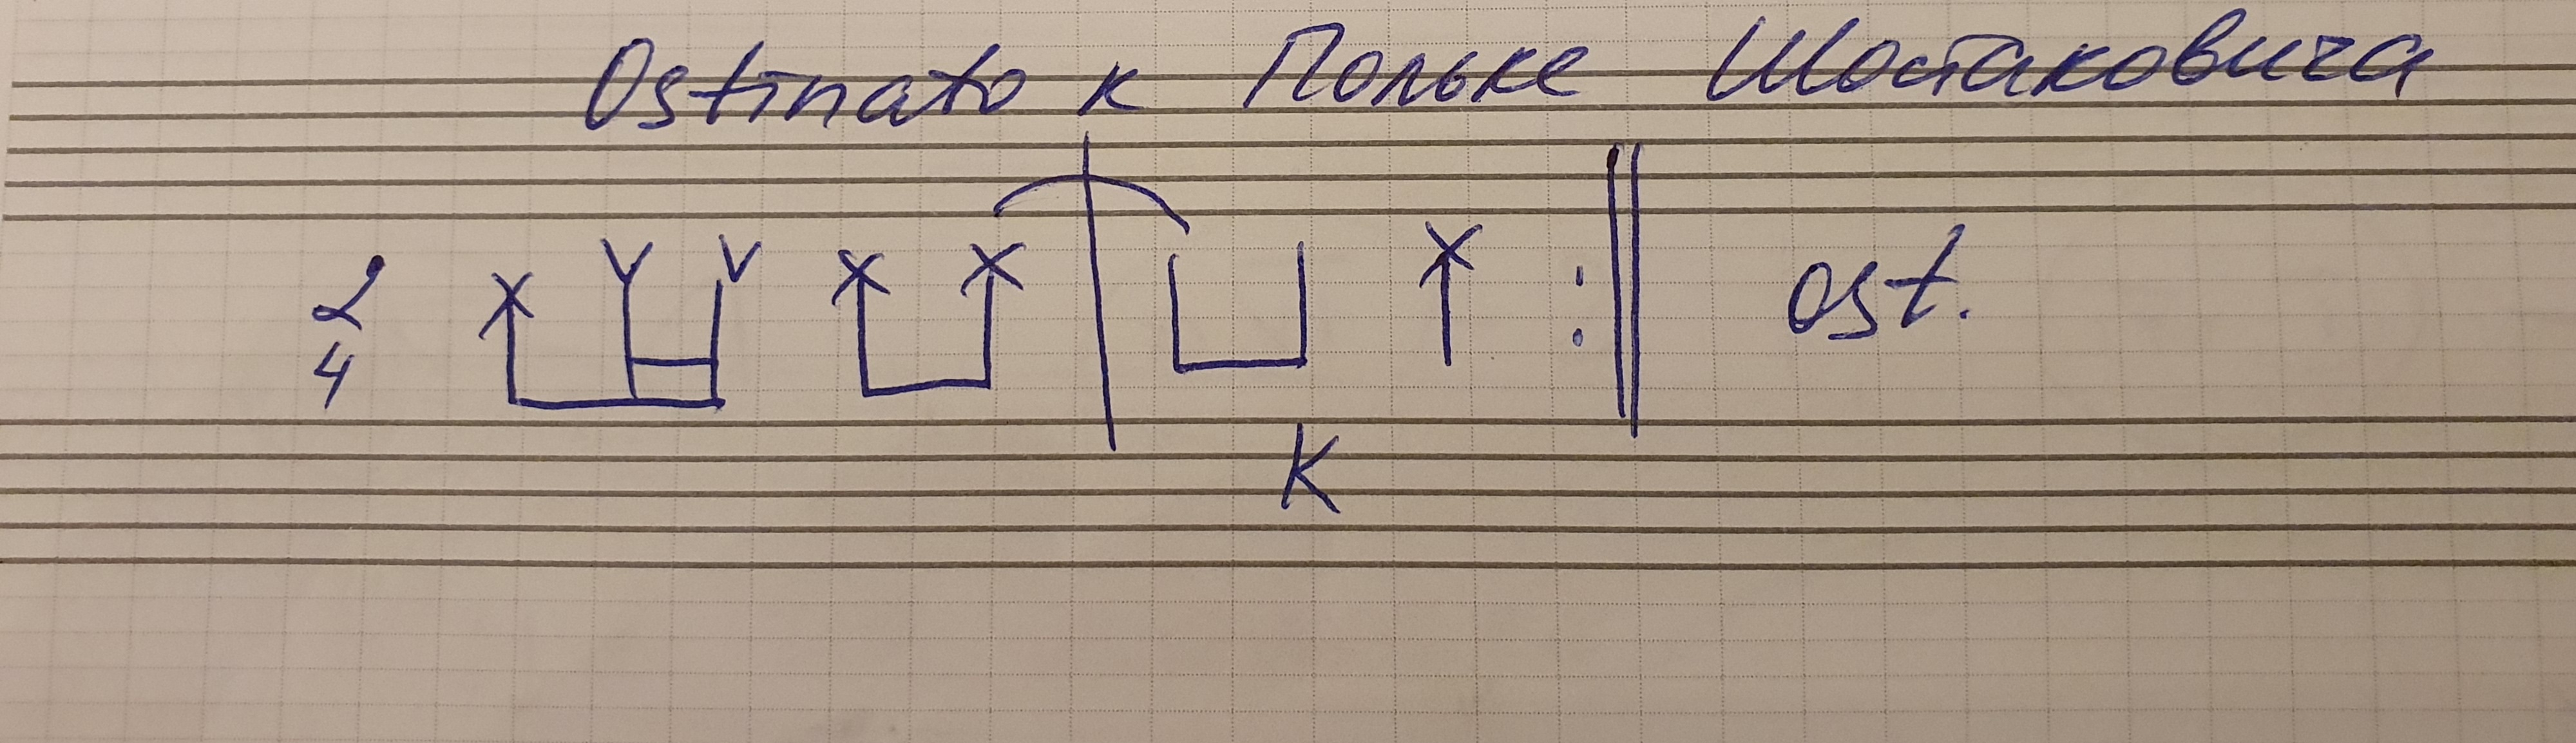 Ostinato к Польке Шостаковича
2
4
ost.
K